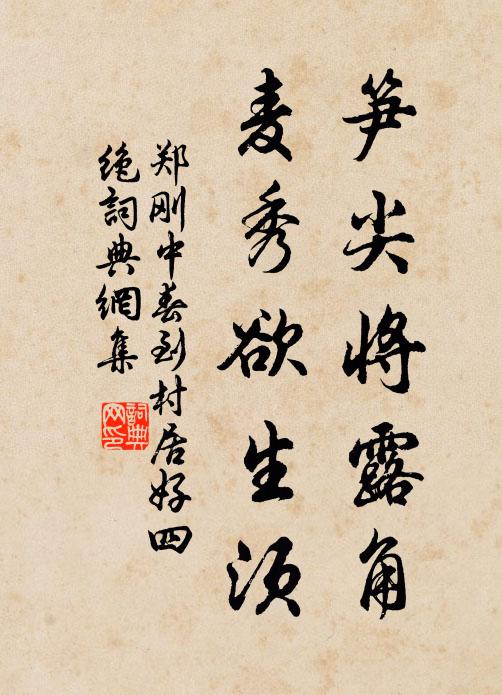 笋尖将露角
麦秀欲生须
郑刚中春到村居好四
絶詞典網集
詞典网印